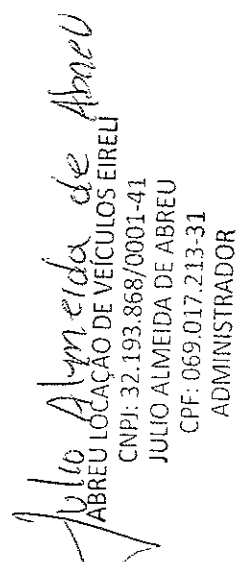 Julio Almeida de Abreu
ABREU LOCAÇÃO DE VEÍCULOS EIRELI
CNPJ: 32.193.868/0001-41
JULIO ALMEIDA DE ABREU
CPF: 069.017.213-31
ADMINISTRADOR